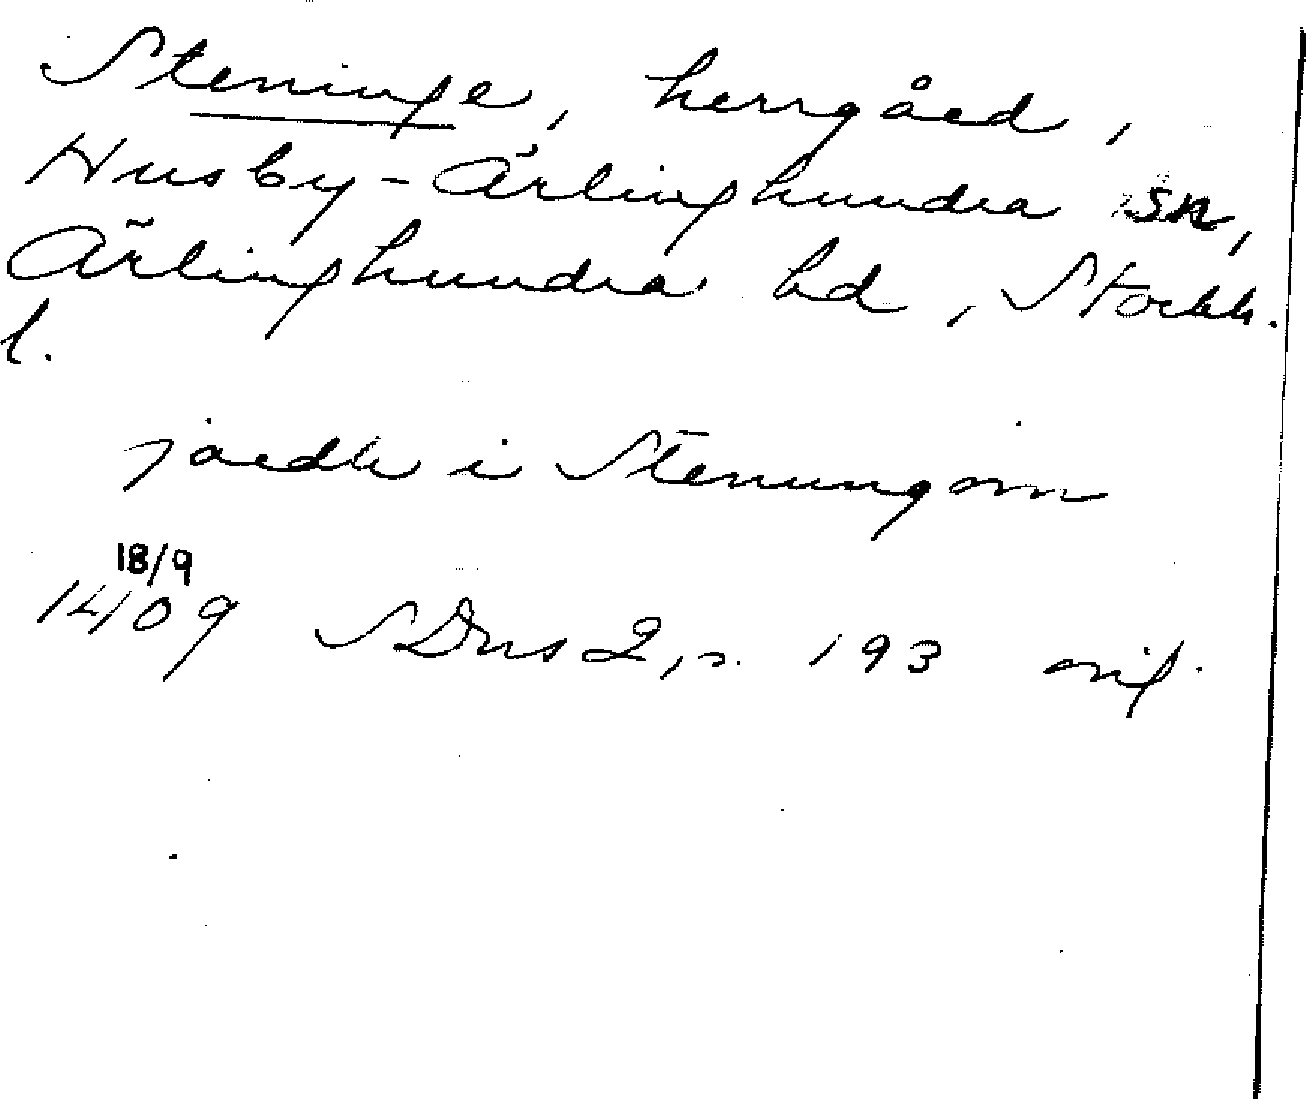 Steninge, herrgård,
Husby-Ärlinghundra sn,
Ärlinghundra hd, Stockh.
l.
jordh i Stenungom
18/9
1409 SDns 2, s. 193 orig.